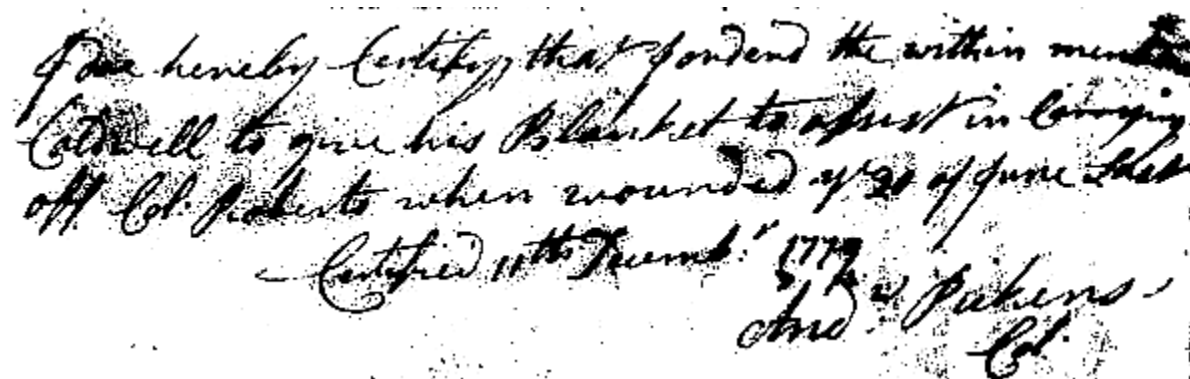 I doe hereby Certify, that I ordend the within
Caldwell to give his Blanket to assist in Carrying
off Col: Roberts when wounded ye 20 of June Last
Certified 11th Decemb:r 1779
And:w Pickens
Col: